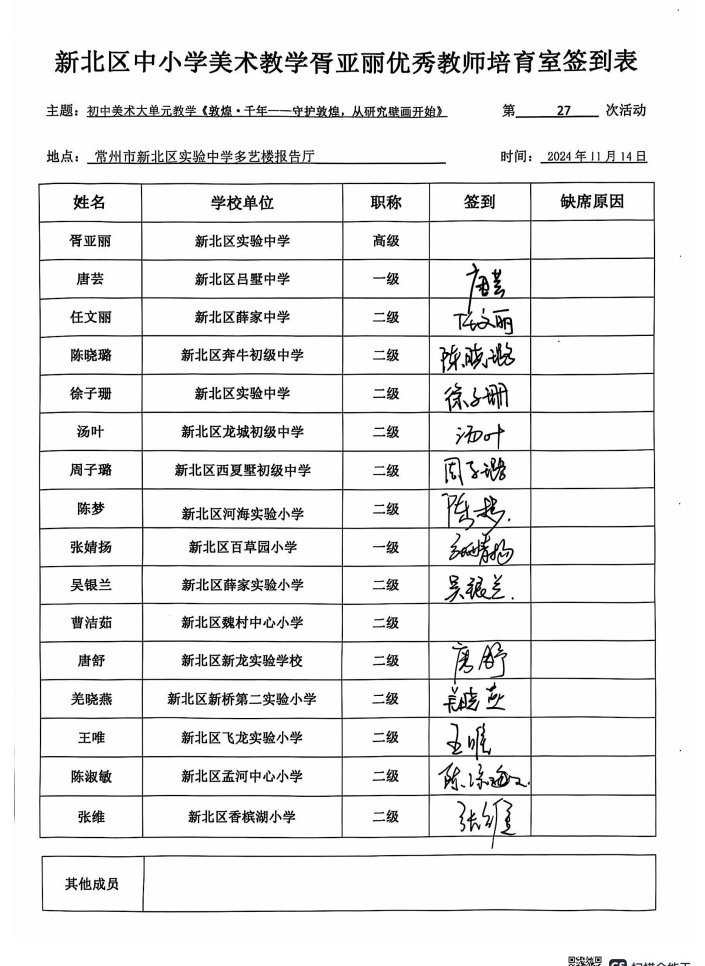 新北区中小学美术教学胥亚丽优秀教师培育室签到表
主题：初中美术大单元教学《敦煌·千年——守护敦煌，从研究壁画开始》 第 27 次活动
地点：常州市新北区实验中学多艺楼报告厅 时间：2024年11月14日
姓名 学校单位 职称 签到 缺席原因
胥亚丽 新北区实验中学 高级
唐芸 新北区吕墅中学 一级 唐芸
任文丽 新北区薛家中学 二级 任文丽
陈晓璐 新北区奔牛初级中学 二级 陈晓璐
徐子珊 新北区实验中学 二级 徐子珊
汤叶 新北区龙城初级中学 二级 汤叶
周子璐 新北区西夏墅初级中学 二级 周子璐
陈梦 新北区河海实验小学 二级 陈梦.
张婧扬 新北区百草园小学 一级 张婧扬
吴银兰 新北区薛家实验小学 二级 吴银兰.
曹洁茹 新北区魏村中心小学 二级
唐舒 新北区新龙实验学校 二级 唐舒
羌晓燕 新北区新桥第二实验小学 二级 羌晓燕
王唯 新北区飞龙实验小学 二级 王唯
陈淑敏 新北区孟河中心小学 二级 陈淑敏.
张维 新北区香槟湖小学 二级 张维
其他成员